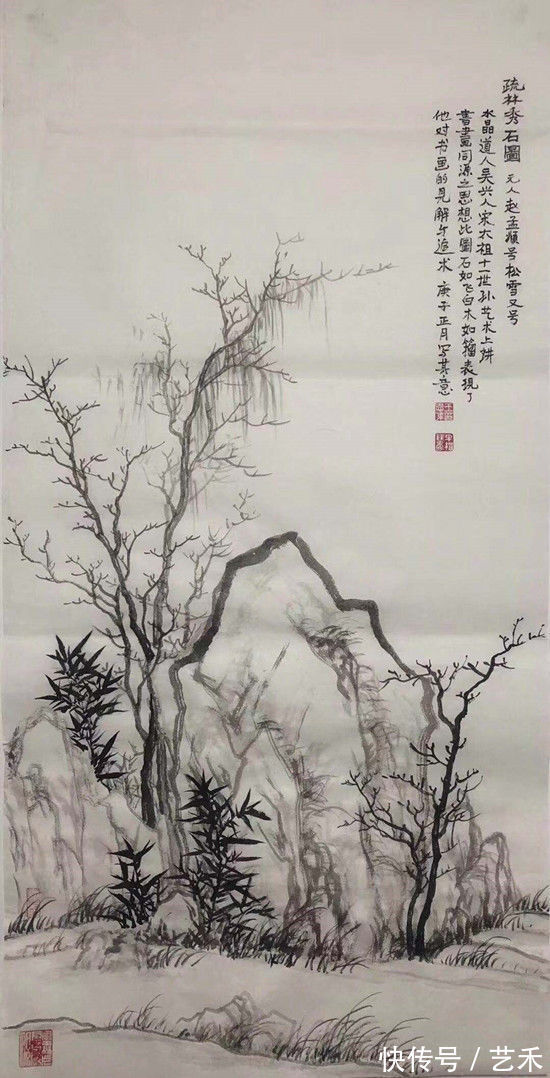 疏林秀石圖 元人赵孟頫号松雪又号
水晶道人吴兴人宋太祖十一世孙艺术上讲
書畫同源之思想比圖石如飞白木如籀表現了
他对书画的見解与追求 庚子正月写其意
快传号／艺禾